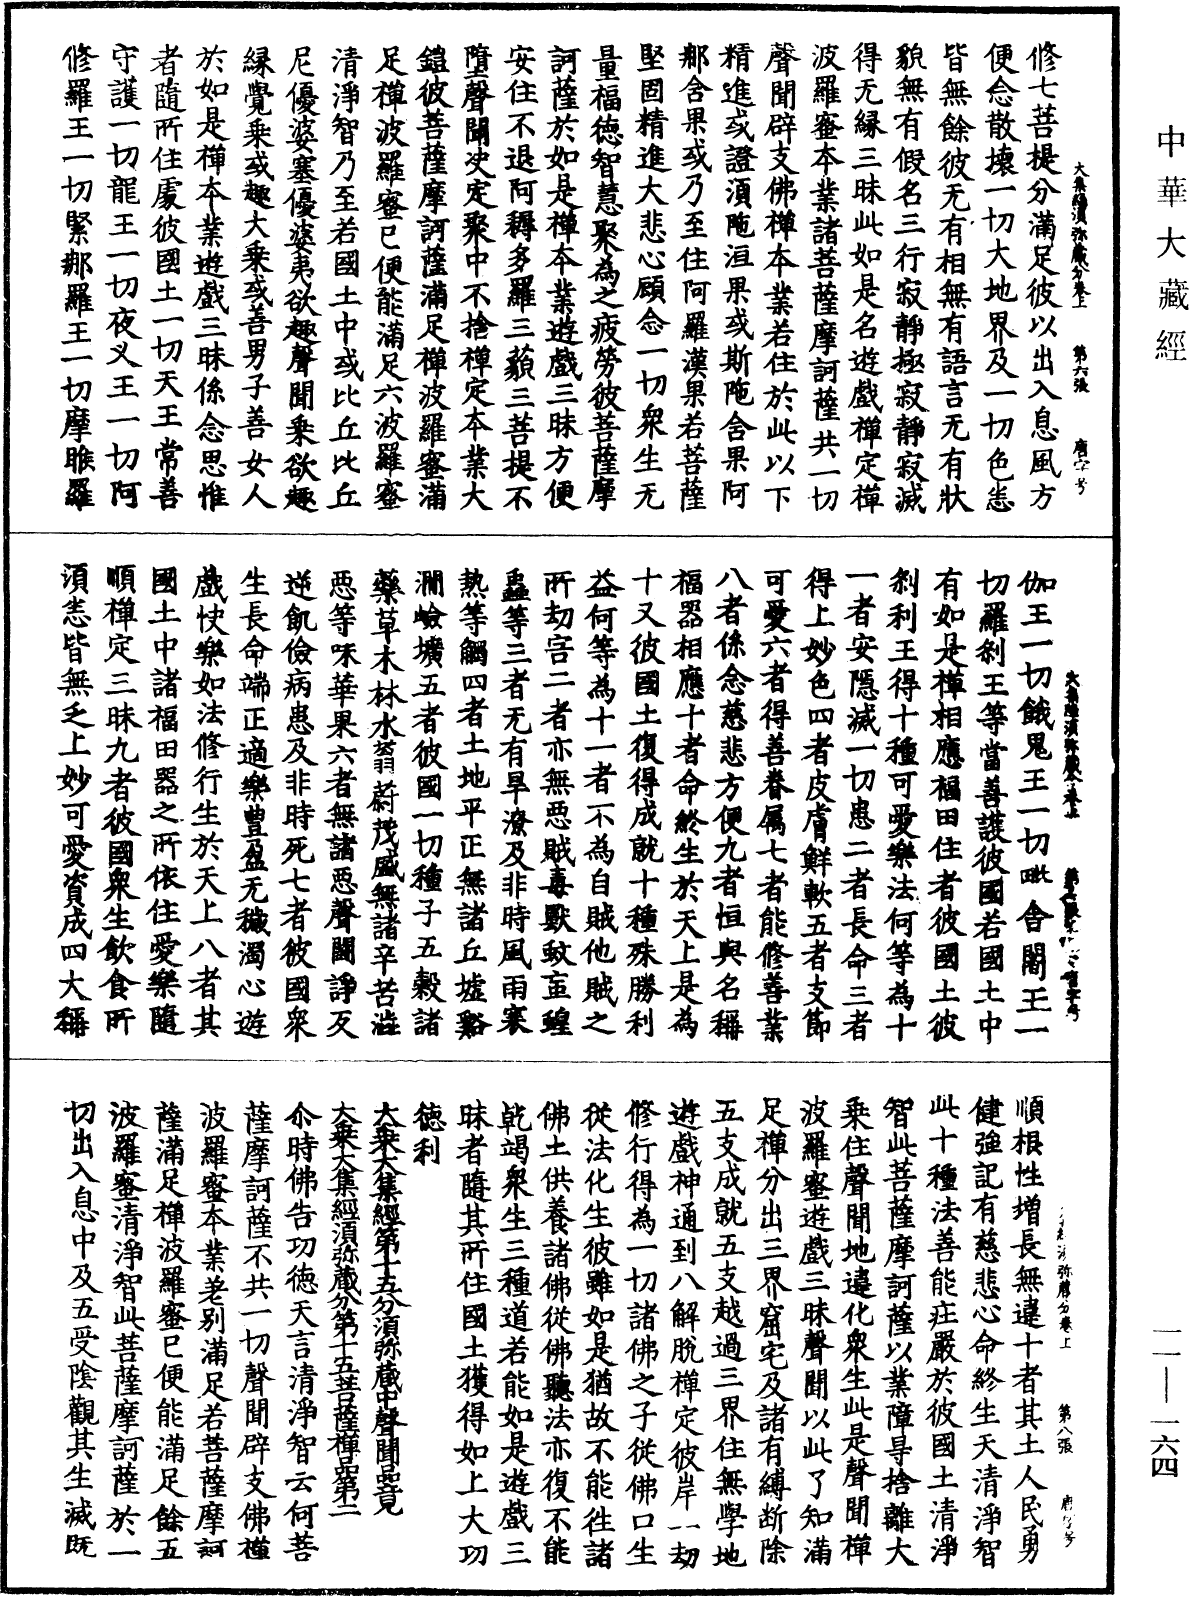 中華大藏經
大集陽須弥藏分卷上　第六張
修七菩提分滿足彼以出入息風方
便念散壞一切大地界及一切色悉
皆無餘彼无有相無有語言无有狀
貌無有假名三行寂靜極寂靜寂滅
得无緣三昧此如是名遊戲禪定禪
波羅蜜本業諸菩薩摩訶薩共一切
聲聞辟支佛禪本業若住於此以下
精進或證須陁洹果或斯陁含果阿
那含果或乃至住阿羅漢果若菩薩
堅固精進大悲心顧念一切衆生无
量福德智慧聚為之疲勞彼菩薩摩
訶薩於如是禪本業遊戲三昧方便
安住不退阿耨多羅三藐三菩提不
墮聲聞決定聚中不捨禪定本業大
鎧彼菩薩摩訶薩滿足禪波羅蜜滿
足禪波羅蜜已便能滿足六波羅蜜
清淨智乃至若國土中或比丘比丘
尼優婆塞優婆夷欲趣聲聞乘欲趣
緣覺乘或趣大乘或善男子善女人
於如是禪本業遊戲三昧係念思惟
者隨所住處彼國土一切天王常善
守護一切龍王一切夜叉王一切阿
修羅王一切緊那羅王一切摩睺羅
伽王一切餓鬼王一切毗舍闍王一
切羅剎王等當善護彼國若國土中
有如是禪相應福田住者彼國土彼
剎利王得十種可愛樂法何等為十
一者安隱滅一切患二者長命三者
得上妙色四者皮膚鮮軟五者支節
可愛六者得善眷屬七者能修善業
八者係念慈悲方便九者恒與名稱
福器相應十者命終生於天上是為
十又彼國土復得成就十種殊勝利
益何等為十一者不為自賊他賊之
所劫害二者亦無惡賊毒獸蚊䖟蝗
蟲等三者无有旱潦及非時風雨寒
熱等觸四者土地平正無諸丘墟谿
澗嶮壙五者彼國一切種子五穀諸
藥草木林水蓊蔚茂盛無諸辛苦澁
惡等味華果六者無諸惡聲鬪諍及
逆飢儉病患及非時死七者彼國衆
生長命端正適樂豐盈无穢濁心遊
戲快樂如法修行生於天上八者其
國土中諸福田器之所依住愛樂隨
順禪定三昧九者彼國衆生飲食所
須悉皆無乏上妙可愛資成四大稱
弥藏分卷上　第八張
順根性增長無違十者其土人民勇
健強記有慈悲心命終生天清淨智
此十種法善能莊嚴於彼國土清淨
智此菩薩摩訶薩以業障㝵捨離大
乘住聲聞地遠化衆生此是聲聞禪
波羅蜜遊戲三昧聲聞以此了知滿
足禪分出三界窟宅及諸有縛斷除
五支成就五支越過三界住無學地
遊戲神通到八解脫禪定彼岸一切
修行得為一切諸佛之子從佛口生
從法化生彼雖如是猶故不能徃諸
佛土供養諸佛從佛聽法亦復不能
乾竭衆生三種道若能如是遊戲三
昧者隨其所住國土獲得如上大功
德利
大乘大集經第十五分須弥藏中聲聞品竟
大乘大集經須弥藏分第十五菩薩禪品第二
尒時佛告功德天言清淨智云何菩
薩摩訶薩不共一切聲聞辟支佛禪
波羅蜜本業差別滿足若菩薩摩訶
薩滿足禪波羅蜜已便能滿足餘五
波羅蜜清淨智此菩薩摩訶薩於一
切出入息中及五受陰觀其生滅既
一一—一六四